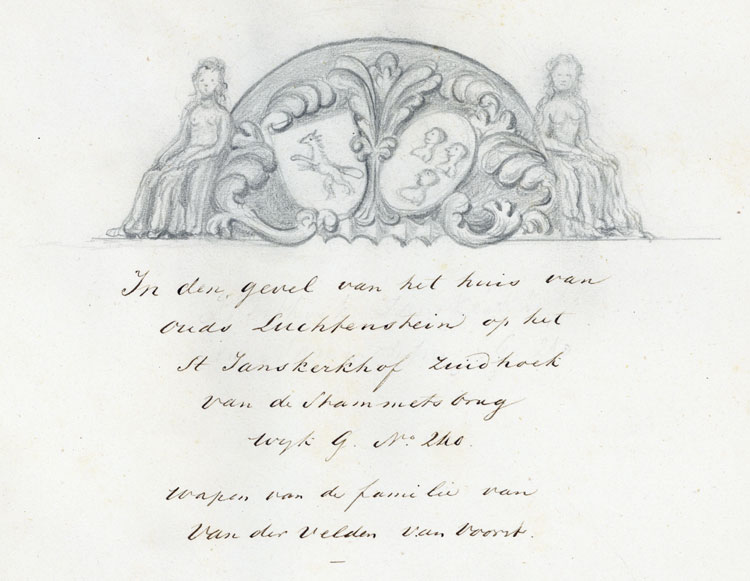 In den gevel van het huis van
ouds Luchtenstein op het
St Janskerkhof Zuidhoek
van de Stammetsbrug
wijk G. No. 240.
wapen van de familie van
Van der Velden van Voorst.